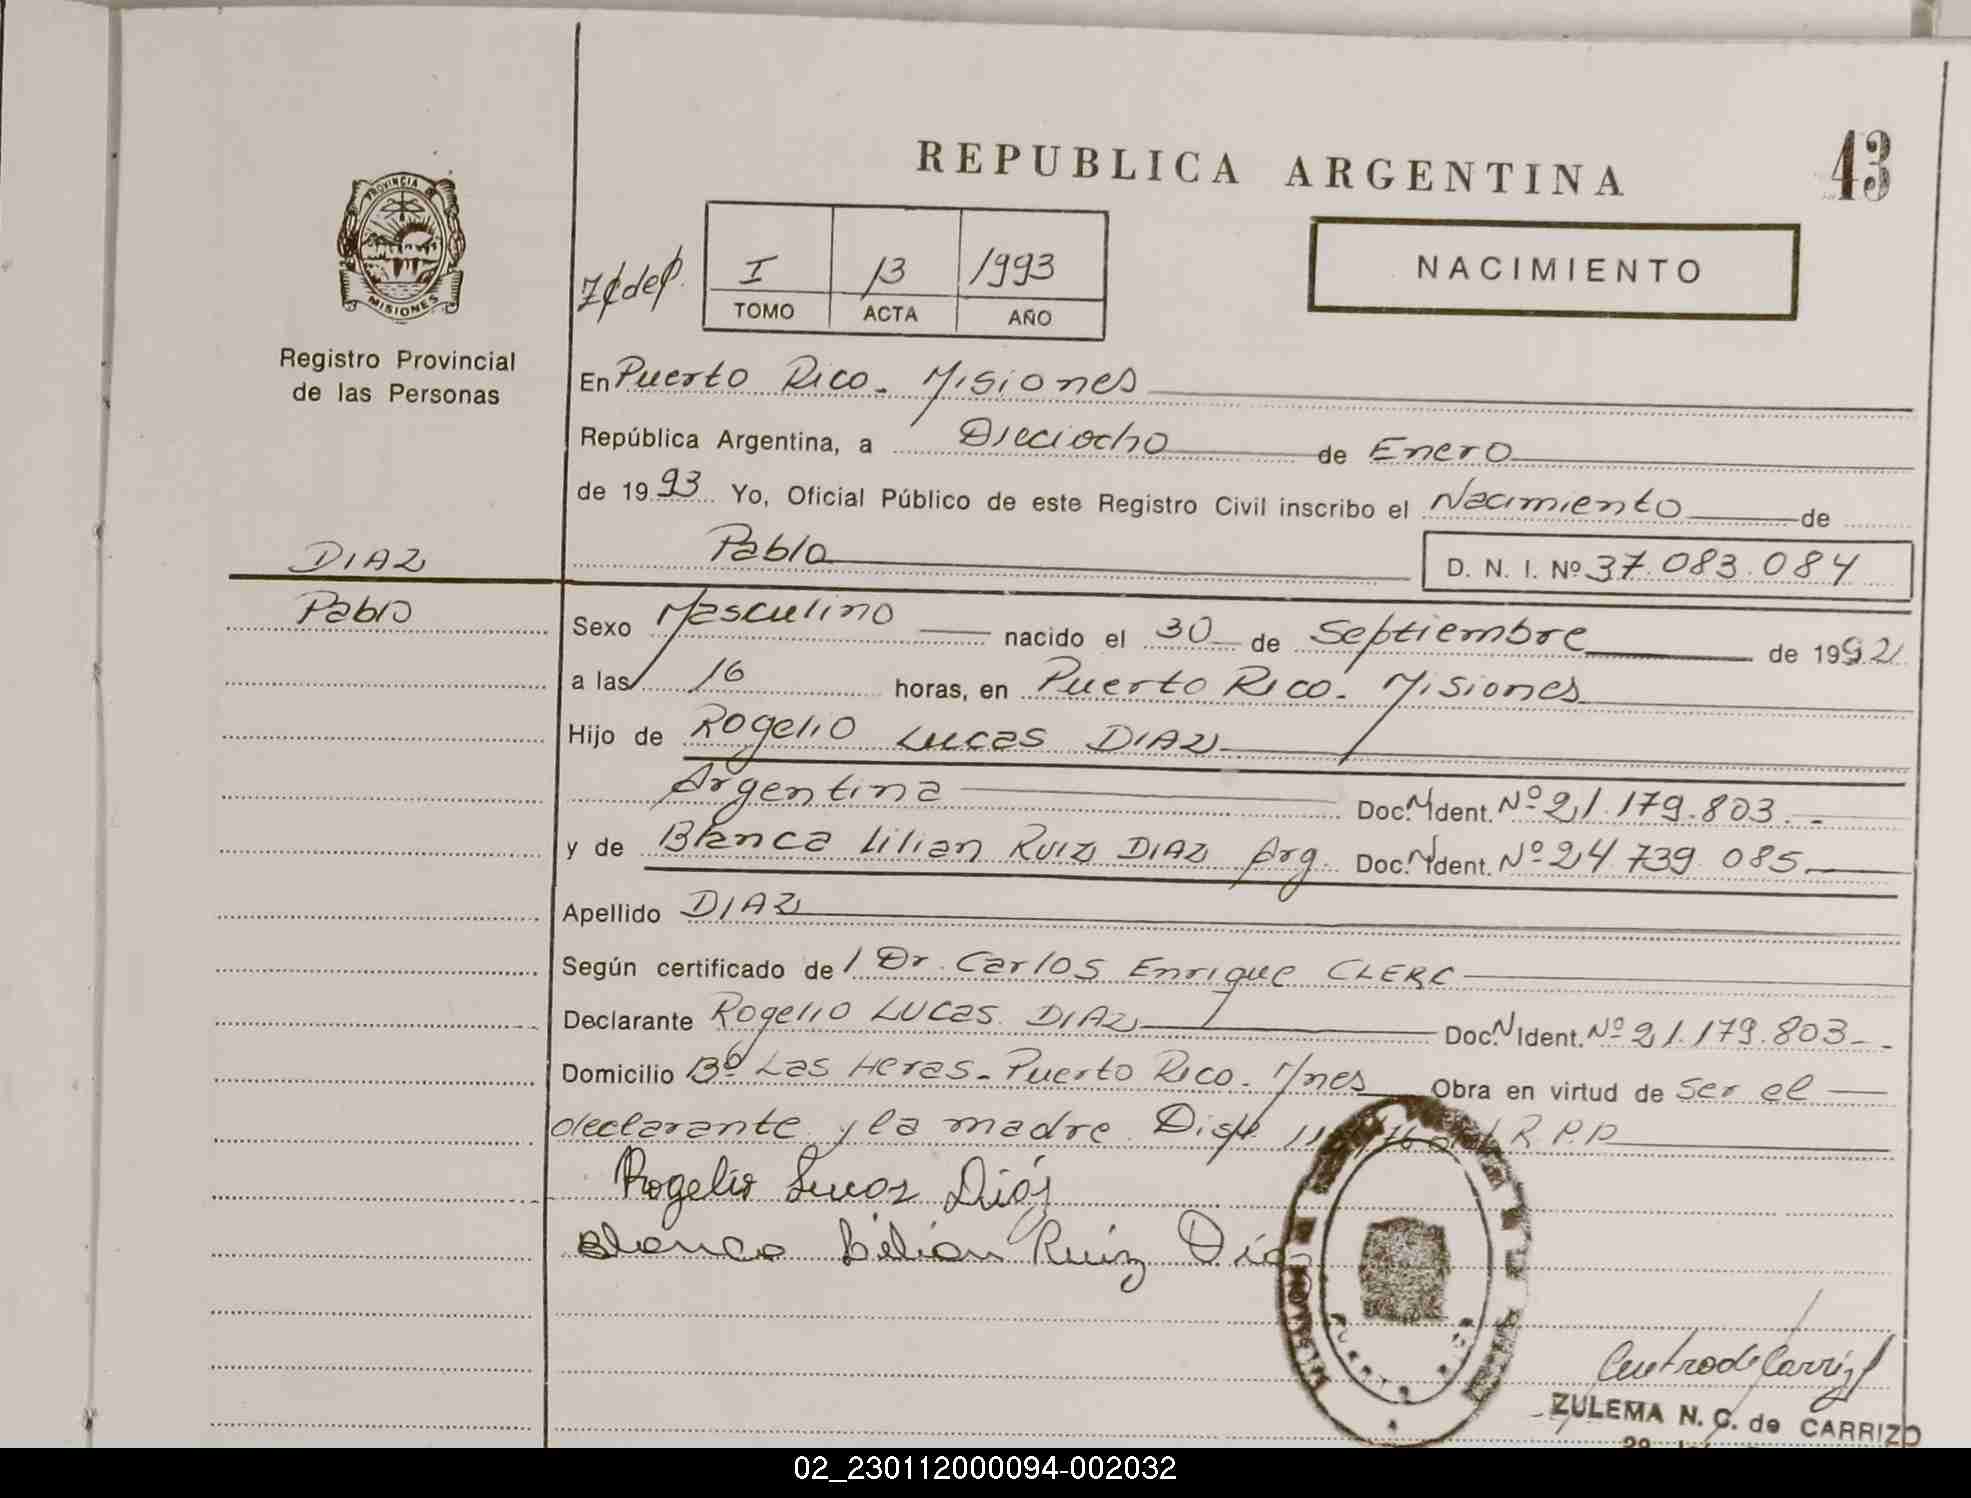 REPUBLICA ARGENTINA
43
PROVINCIA
MISIONES
Registro Provincial
de las Personas
I 13 1993
TOMO ACTA AÑO
NACIMIENTO
En Puerto Rico. Misiones
República Argentina, a Dieciocho de Enero
de 1993 Yo, Oficial Público de este Registro Civil inscribo el Nacimiento de
DIAZ
Pablo D. N. I. Nº 37.083.084
Pablo
Sexo Masculino nacido el 30 de Septiembre de 1992
a las 16 horas, en Puerto Rico. Misiones
Hijo de Rogelio Lucas DIAZ
Argentina Doc. N Ident. Nº 21.179.803.-
y de Blanca Lilian RUIZ DIAZ Arg. Doc. N Ident. Nº 24.739.085.
Apellido DIAZ
Según certificado de / Dr. Carlos Enrique CLERC
Declarante Rogelio Lucas DIAZ Doc. N Ident. Nº 21.179.803.-
Domicilio Bº Las Heras. Puerto Rico. Mnes Obra en virtud de ser el
declarante y la madre. Disp. R.P.P
Rogelio Lucas Diaz
Blanca Lilian Ruiz Diaz
ZULEMA N. C. de CARRIZO
02_230112000094-002032